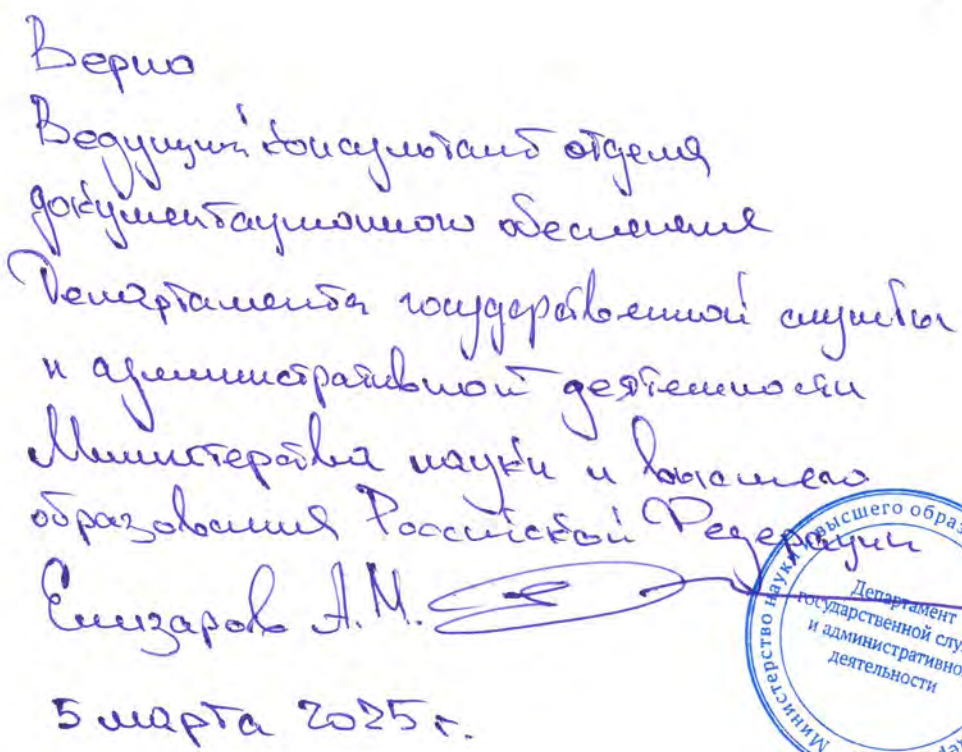 Верно
Ведущий консультант отдела
документационного обеспечения
Департамента государственной службы
и административной деятельности
Министерства науки и высшего
образования Российской Федерации
Елизаров А.М.
5 марта 2025 г.
Министерство науки и высшего образ
Департамент
государственной служ
и административно
деятельности